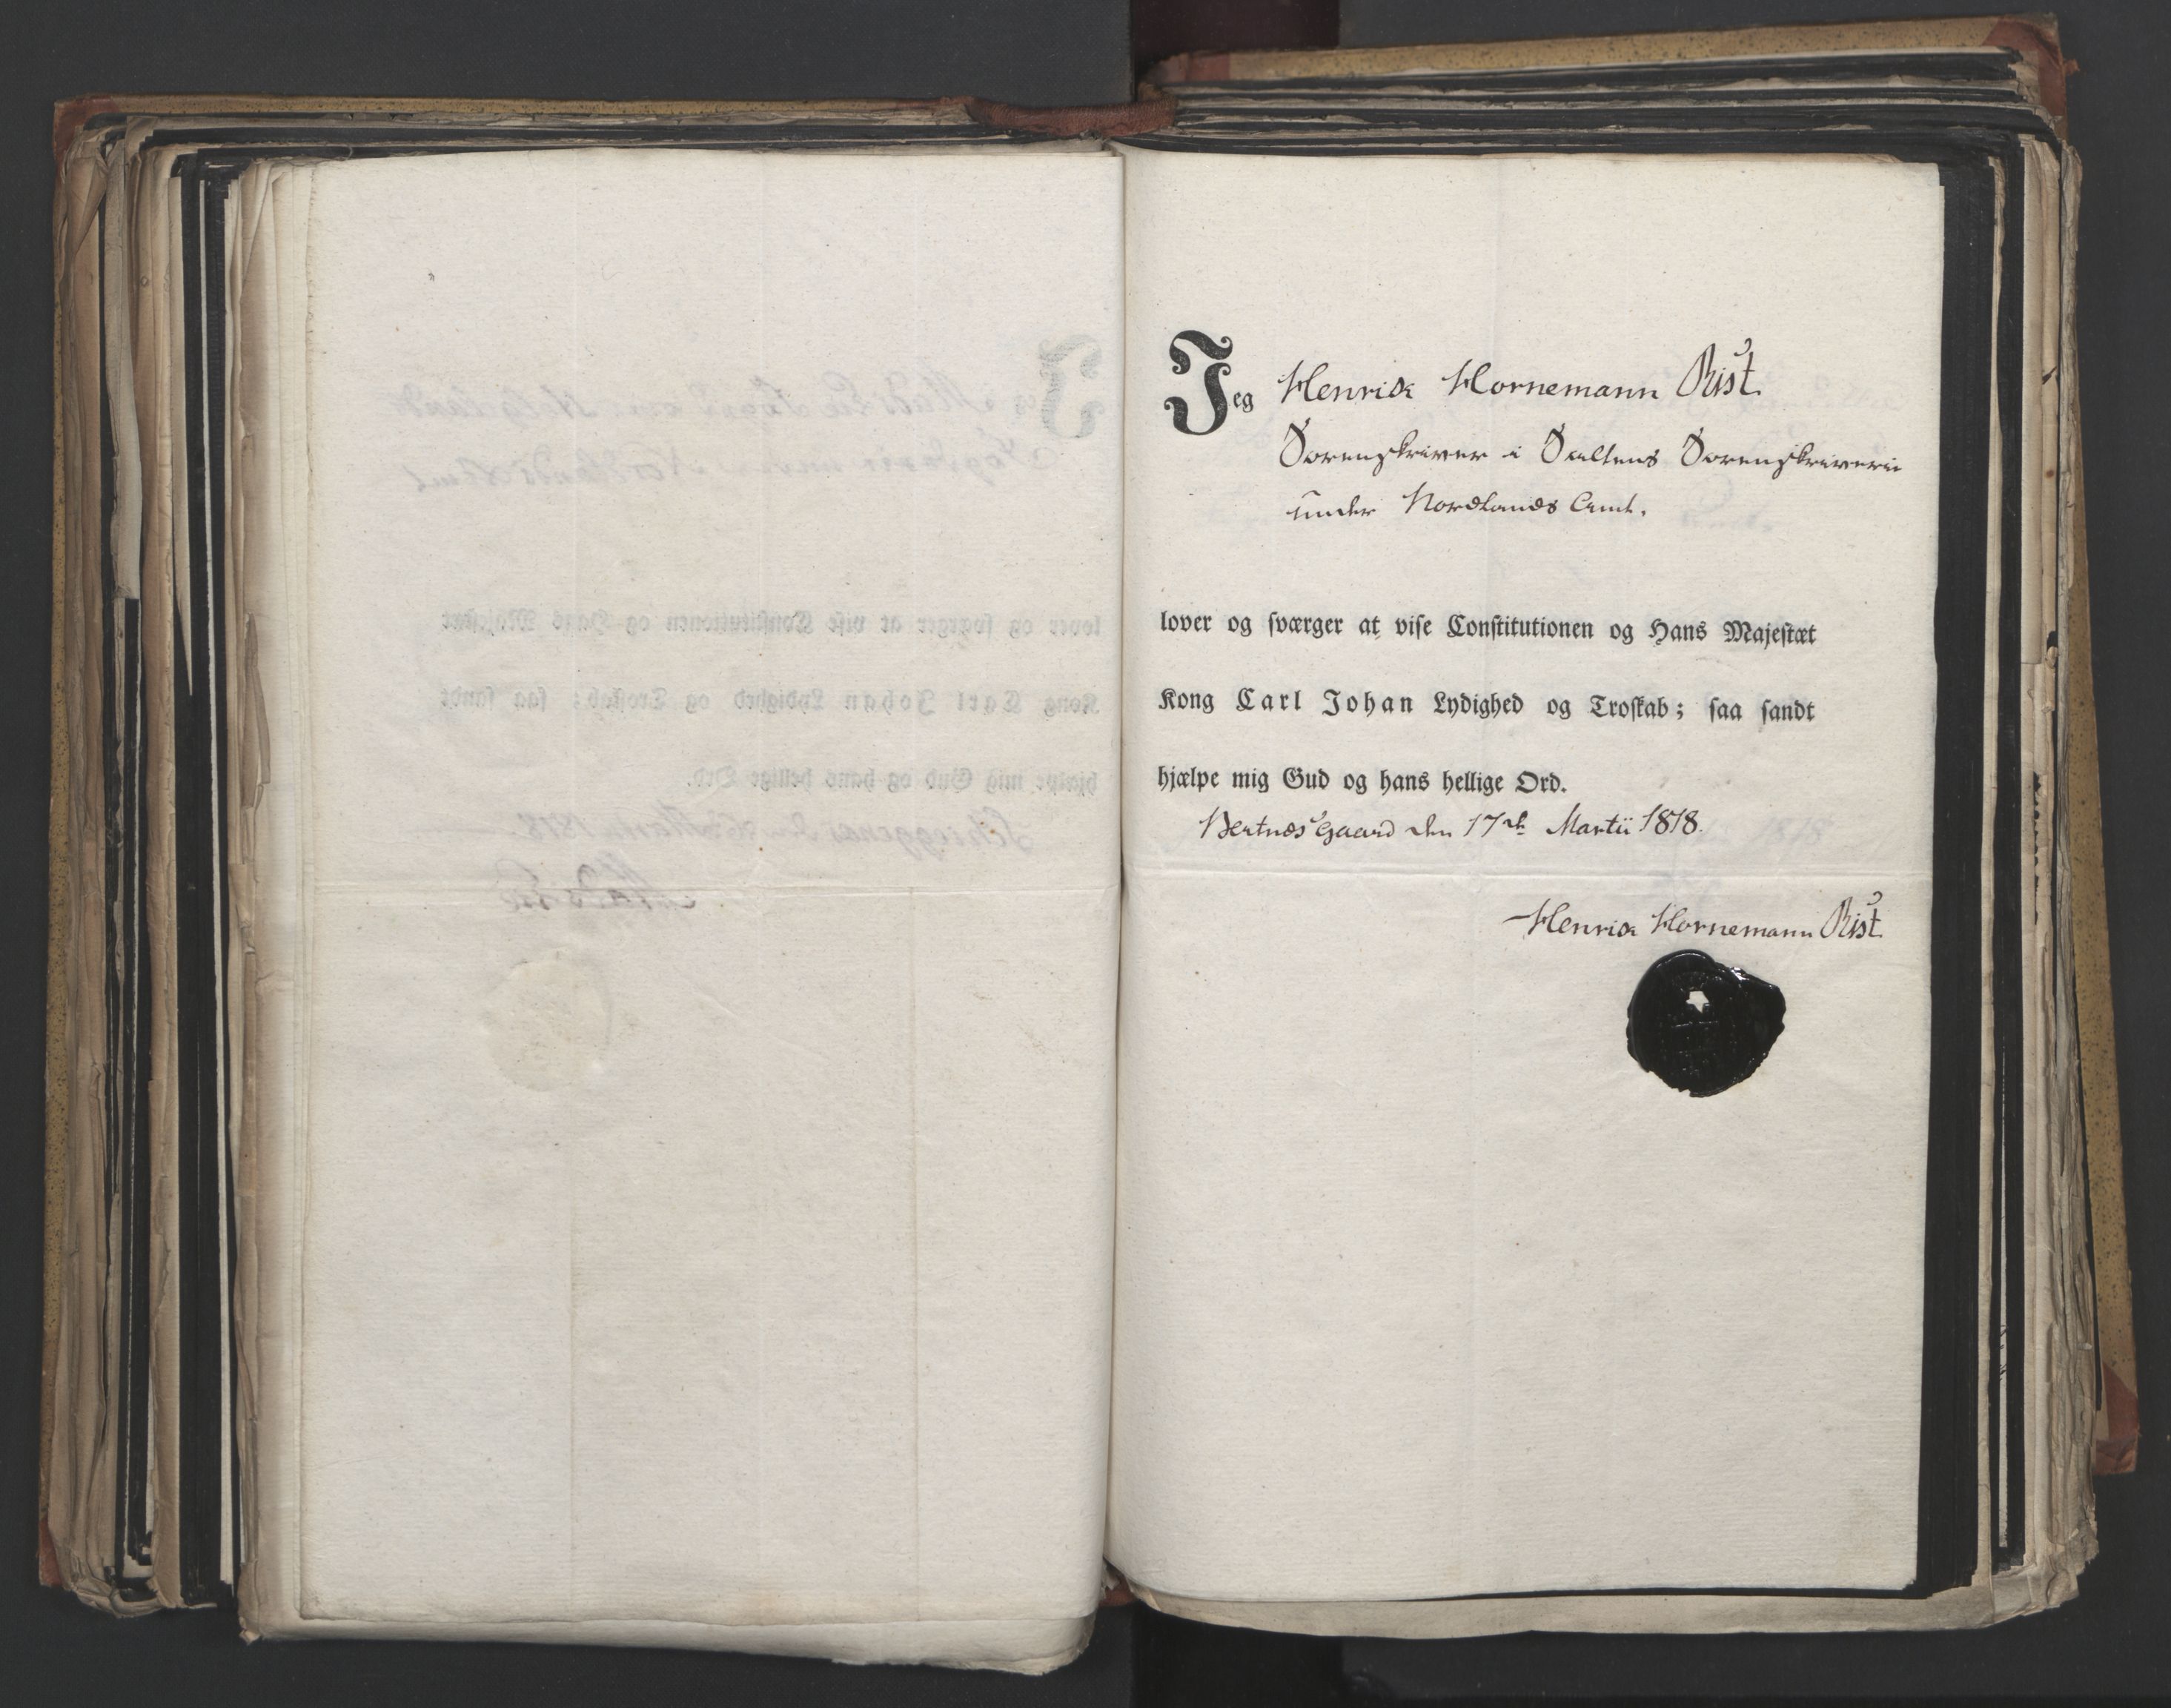 Jeg Henrick Hornemann Rist
Sorenskriver i Saltens Sorenskriverie
under Nordlands Amt.
lover og sværger at vise Constitutionen og Hans Majestæt
Kong Carl Johan Lydighed og Troskab; saa sandt
hjælpe mig Gud og hans hellige Ord.
Bertnes Gaard den 17de Martii 1818.
Henrick Hornemann Rist